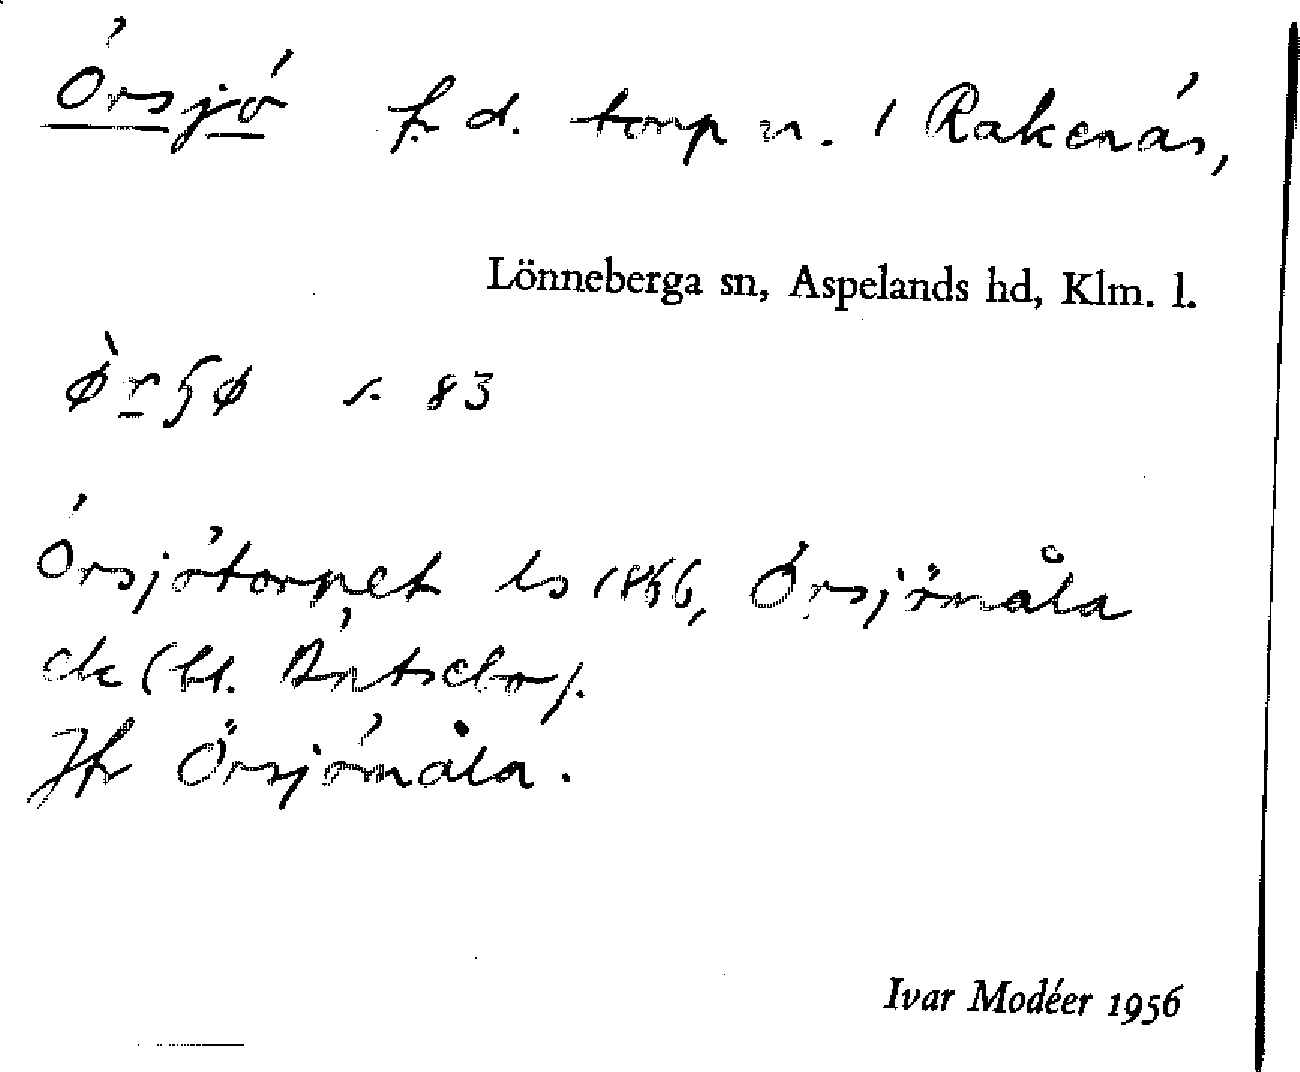 Örsjö f.d. torp n. i Rakenäs,
Lönneberga sn, Aspelands hd, Klm. l.
s. 83
Örsjötorpet ls 1856, Örsjömåla
ek (bl.
Jfr Örsjömåla.
Ivar Modéer 1956